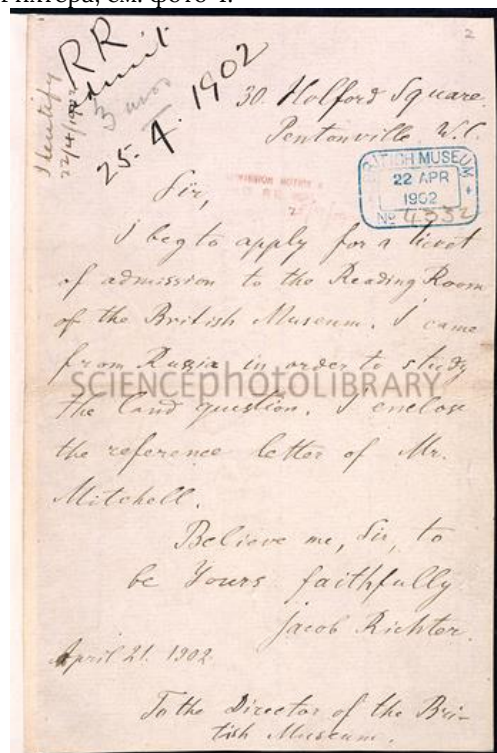 Рихтера, см. фото 4.
2
RR
admit
3 mos
25.4.1902
Identify
22/4/1902
30. Holford Square.
Pentonville W.C.
BRITISH MUSEUM
22 APR
1902
No 4332
Sir,
I beg to apply for a ticket
of admission to the Reading Room
of the British Museum. I came
from Russia in order to study
SCIENCEphotoLIBRARY
the land question. I enclose
the reference letter of Mr.
Mitchell.
Believe me, Sir, to
be Yours faithfully
Jacob Richter.
April 21. 1902.
To the Director of the Bri-
tish Museum.